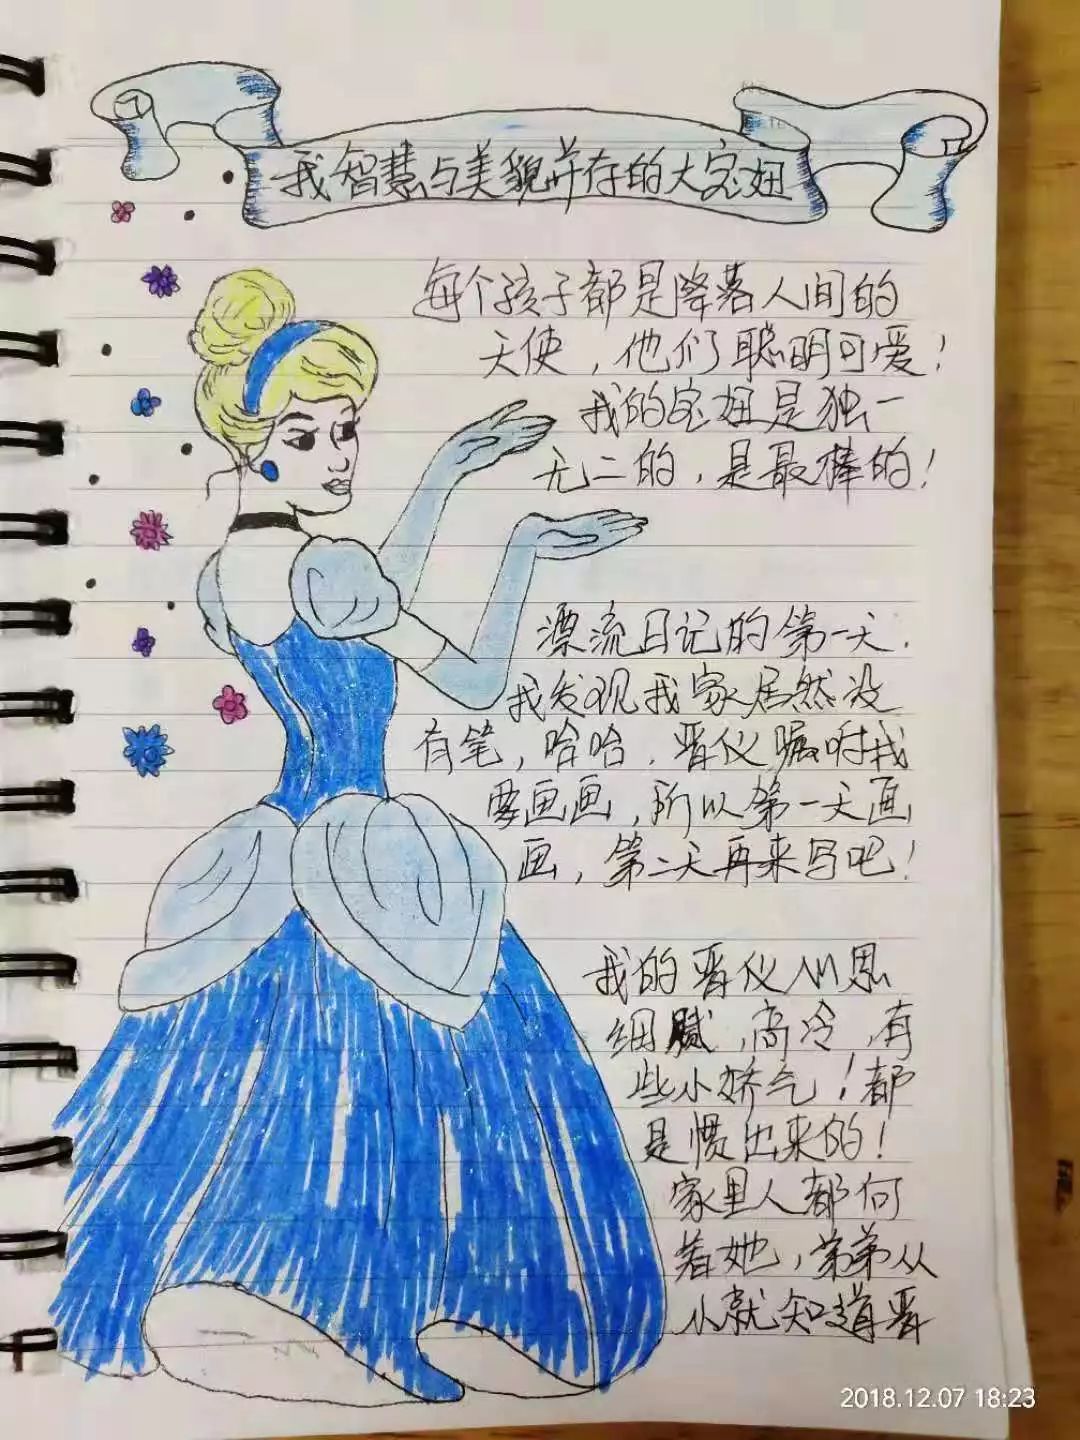 我智慧与美貌并存的大宝妞
每个孩子都是降落人间的
天使，他们聪明可爱！
我的宝妞是独一
无二的，是最棒的！
漂流日记的第一天．
我发现我家居然没
有笔，哈哈．晋仪嘱咐我
要画画，所以第一天画
画，第二天再来写吧！
我的晋仪心思
细腻，高冷，有
些小娇气！都
是惯出来的！
家里人都向
着她，弟弟从
小就知道晋
2018.12.07 18:23